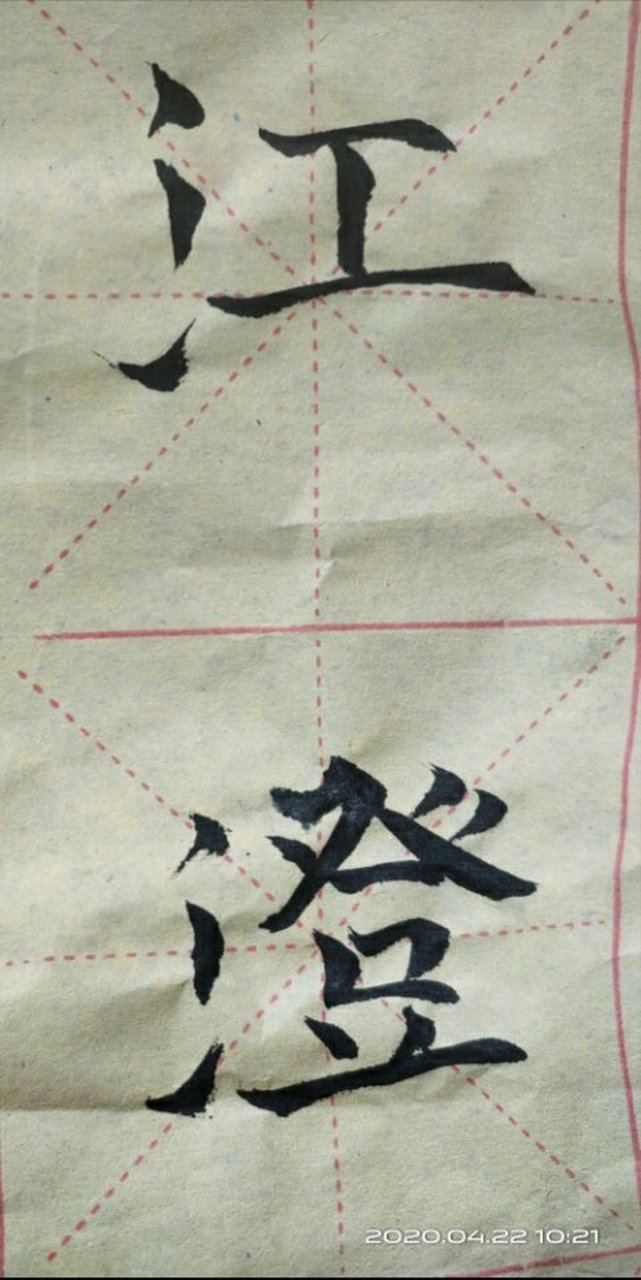 江
澄
2020.04.22 10:21